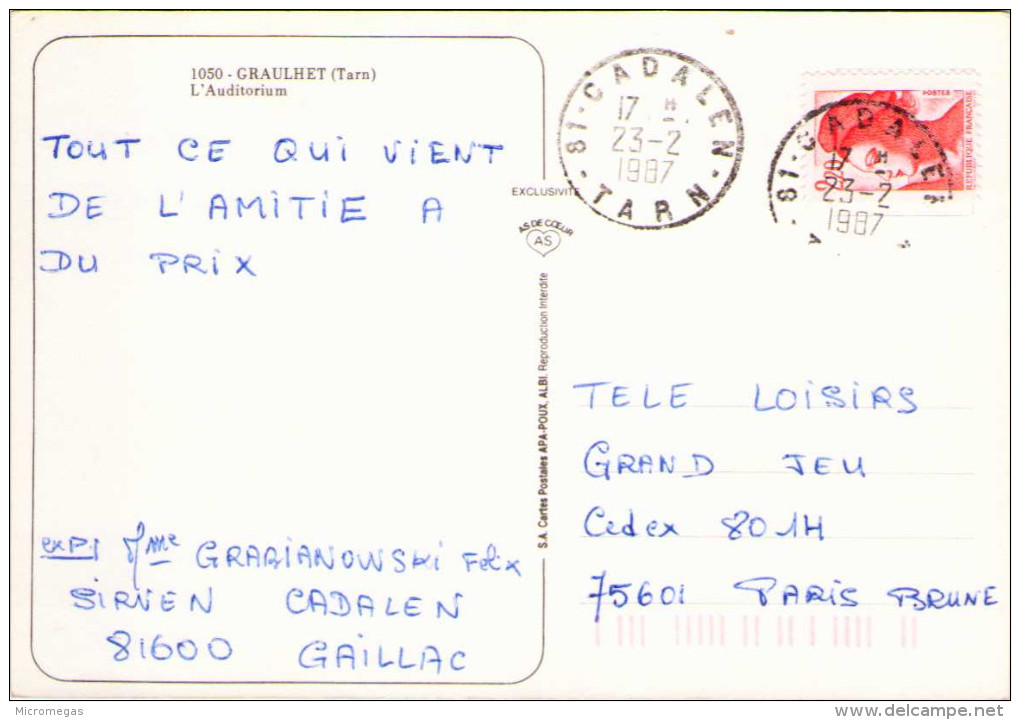 1050 - GRAULHET (Tarn)
L'Auditorium
TOUT CE QUI VIENT
DE L'AMITIE A
DU PRIX
exp: Mme GRABIANOWSKI Felix
SIRVEN CADALEN
81600 GAILLAC
EXCLUSIVITE
AS DE CŒUR
AS
S.A. Cartes Postales APA-POUX, ALBI. Reproduction Interdite
81 - CADALEN - TARN -
17 H
23-2
1987
POSTES
REPUBLIQUE FRANÇAISE
2,20
81 - CADALEN
17 H
23-2
1987
TELE LOISIRS
GRAND JEU
Cedex 801H
75601 PARIS BRUNE
Micromegas
www.delcampe.net